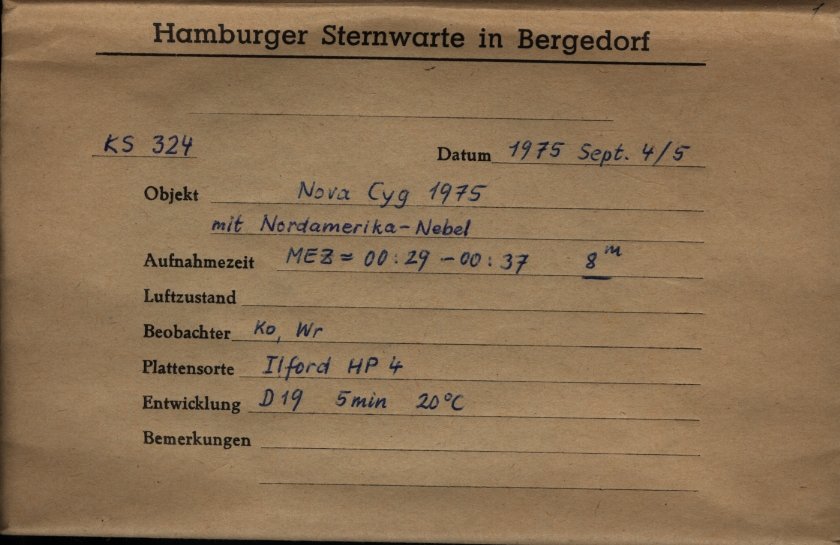 Hamburger Sternwarte in Bergedorf
KS 324 Datum 1975 Sept. 4/5
Objekt Nova Cyg 1975
mit Nordamerika-Nebel
Aufnahmezeit MEZ = 00:29 - 00:37 8ᵐ
Luftzustand
Beobachter Ko, Wr
Plattensorte Ilford HP 4
Entwicklung D19 5min 20°C
Bemerkungen